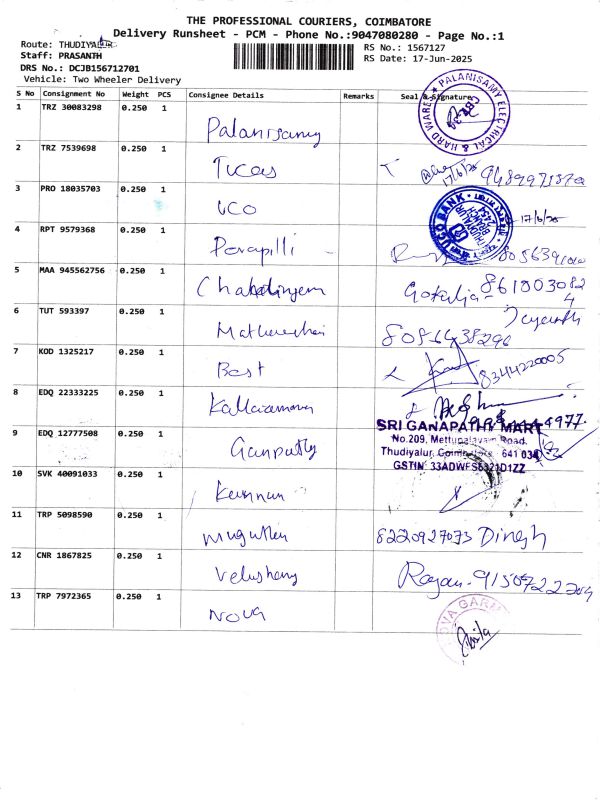 THE PROFESSIONAL COURIERS, COIMBATORE
Delivery Runsheet - PCM - Phone No.:9047080280 - Page No.:1
Route: THUDIYALUR
Staff: PRASANTH
DRS No.: DCJB156712701
Vehicle: Two Wheeler Delivery
RS No.: 1567127
RS Date: 17-Jun-2025
S No Consignment No Weight PCS Consignee Details Remarks Seal & Signature
1 TRZ 30083298 0.250 1 Palanisamy
PALANISAMY ELECTRICAL & HARDWARES
2 TRZ 7539698 0.250 1 Tucas 17/6/25
3 PRO 18035703 0.250 1 UCO 17/6/25
UCO BANK
4 RPT 9579368 0.250 1
5 MAA 945562756 0.250 1 8610030824
6 TUT 593397 0.250 1 Jayanth
7 KOD 1325217 0.250 1 Best 8344220005
8 EDQ 22333225 0.250 1
9 EDQ 12777508 0.250 1 Ganpathy
SRI GANAPATHY MART
No.209, Mettupalayam Road,
Thudiyalur, Coimbatore 641 034
10 SVK 40091033 0.250 1 Kannan
11 TRP 5098590 0.250 1 8220927073 Dinesh
12 CNR 1867825 0.250 1 Rajan
13 TRP 7972365 0.250 1 Nova